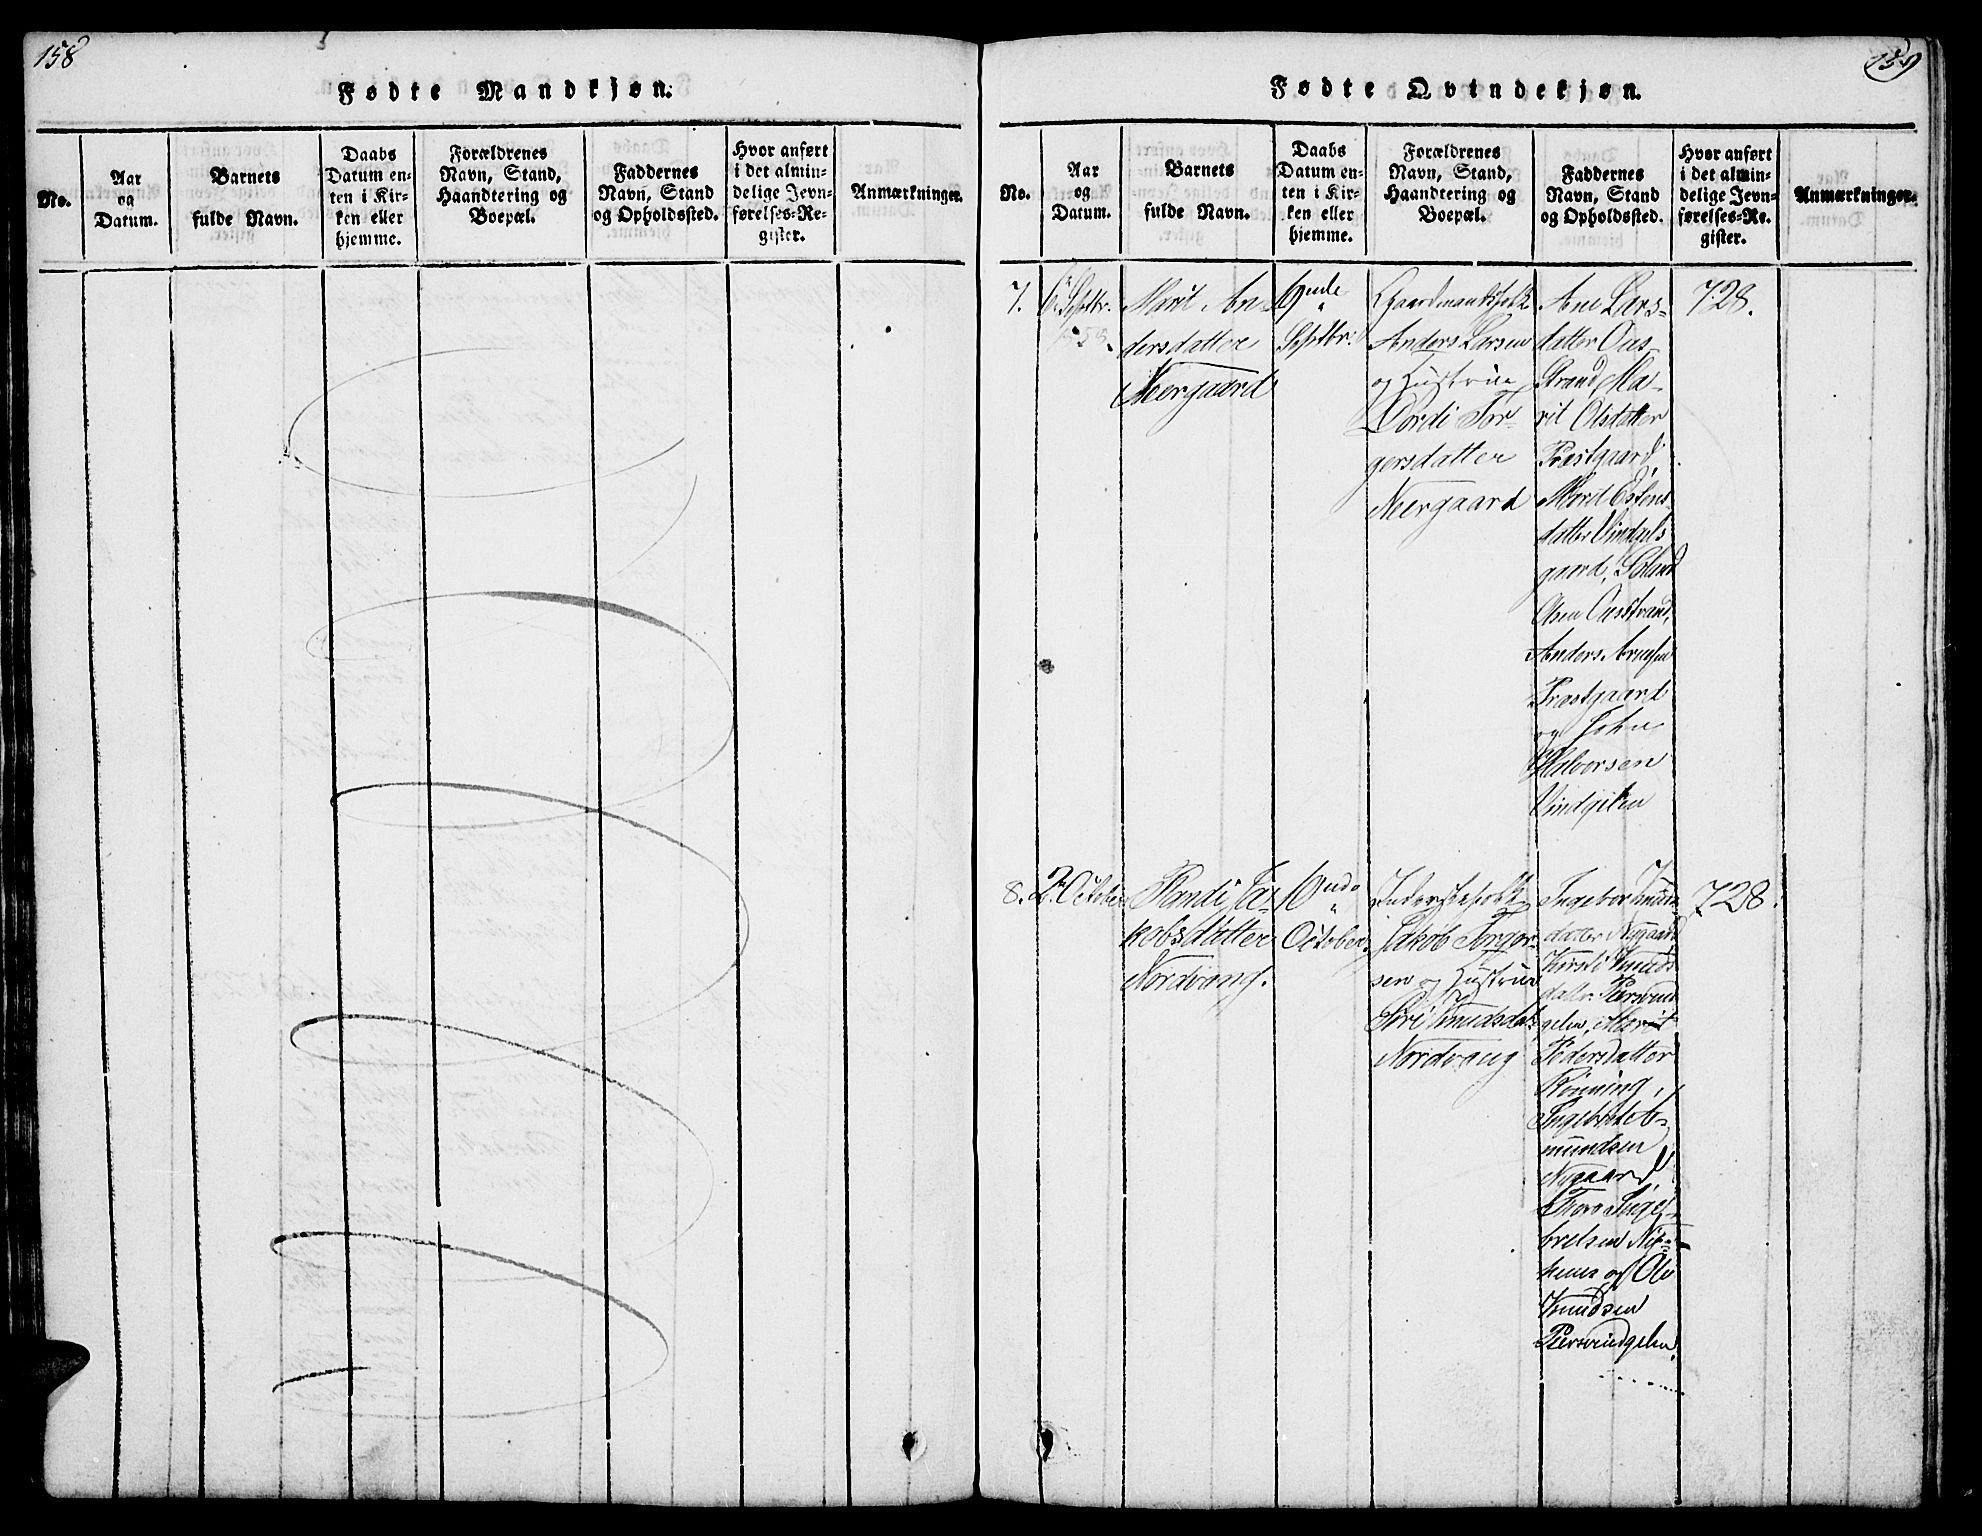 158
Fødte Mandkjøn.
No.
Aar
og
Datum.
Barnets
fulde Navn.
Daabs
Datum en-
ten i Kir-
ken eller
hjemme.
Forældrenes
Navn, Stand,
Haandtering og
Boepæl.
Faddernes
Navn, Stand
og Opholdssted.
Hvor anført
i det almin-
delige Jevn-
førelses-Re-
gister.
Anmærkninger.
159
Fødte Qvindekjøn.
No.
Aar
og
Datum.
Barnets
fulde Navn.
Daabs
Datum en-
ten i Kir-
ken eller
hjemme.
Forældrenes
Navn, Stand,
Haandtering og
Boepæl.
Faddernes
Navn, Stand
og Opholdssted.
Hvor anført
i det almin-
delige Jevn-
førelses-Re-
gister.
Anmærkninger.
7.
6. Septbr.
Marit An-
dersdatter
Neergaard
Septbr.
Gaardmandsfolk
Anders Larsen
og Hustrue
Dordi Tor-
gersdatter
Neergaard
Ane Lars-
datter Ous-
Strand, Ma-
rit Olsdatter
Præstgaard,
Marit Estens-
datter Vindgels-
gaard,
Olsen Ousstrand,
Anders Arnesen
Præstgaard
og John
Halvorsen
Vindgelen
728.
8.
2. October
Randi Ja-
kobsdatter
Nordvang.
October.
Inderstefolk
Jakob Torger-
sen og Hustrue
Siri Knudsdat.
Nordvang
Ingebor Knuds-
datter Nygaard
Kirsti Knuds
datter Persvind-
gelen, Marit
Pedersdatter
Rønning,
Ingebret A-
mundsen
Nygaard
Thore Inge-
bretsen
og Ole
Knudsen
Persvindgelen.
728.